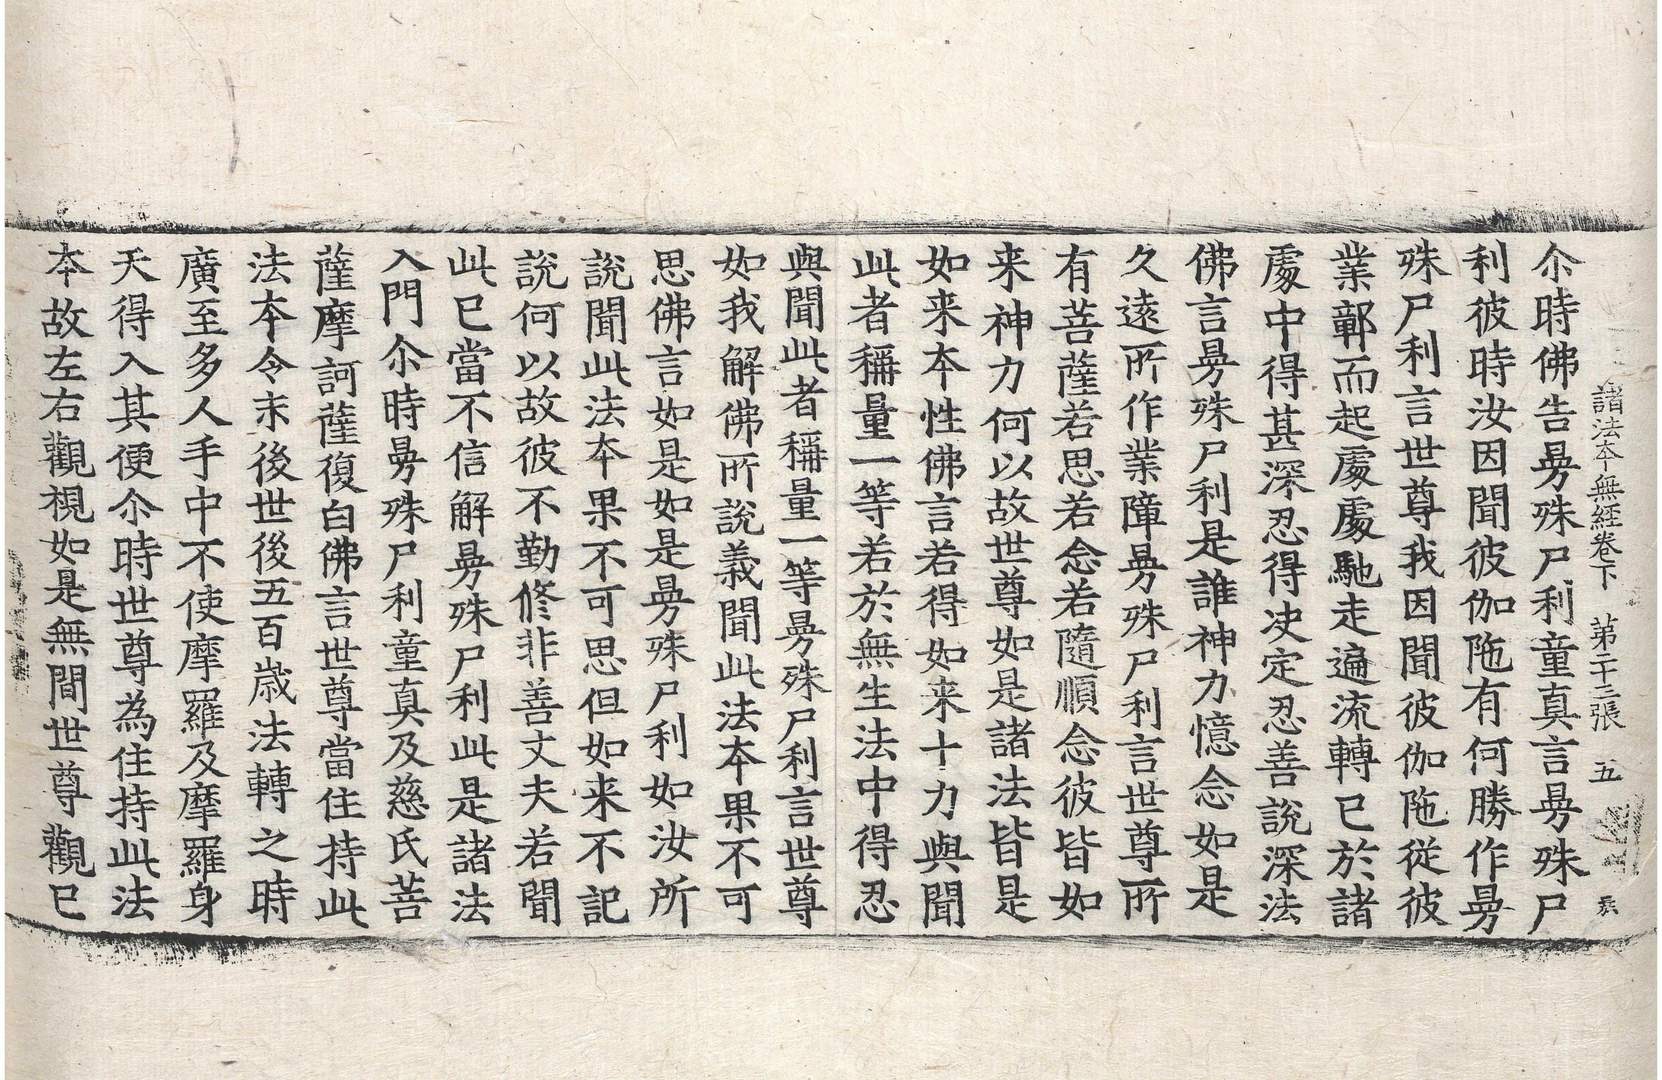 諸法本無経卷下 第二十三張 五
尒時佛告㬅殊尸利童真言㬅殊尸
利彼時汝因聞彼伽陁有何勝作㬅
殊尸利言世尊我因聞彼伽陁從彼
業鄣而起處處馳走遍流轉已於諸
處中得甚深忍得决定忍善說深法
佛言㬅殊尸利是誰神力憶念如是
久遠所作業障㬅殊尸利言世尊所
有菩薩若思若念若隨順念彼皆如
来神力何以故世尊如是諸法皆是
如来本性佛言若得如来十力與聞
此者稱量一等若於無生法中得忍
與聞此者稱量一等㬅殊尸利言世尊
如我解佛所說義聞此法本果不可
思佛言如是如是㬅殊尸利如汝所
說聞此法本果不可思但如来不記
說何以故彼不勤修非善丈夫若聞
此已當不信解㬅殊尸利此是諸法
入門尒時㬅殊尸利童真及慈氏菩
薩摩訶薩復白佛言世尊當住持此
法本令末後世後五百歲法轉之時
廣至多人手中不使摩羅及摩羅身
天得入其便尒時世尊為住持此法
本故左右觀視如是無間世尊觀已